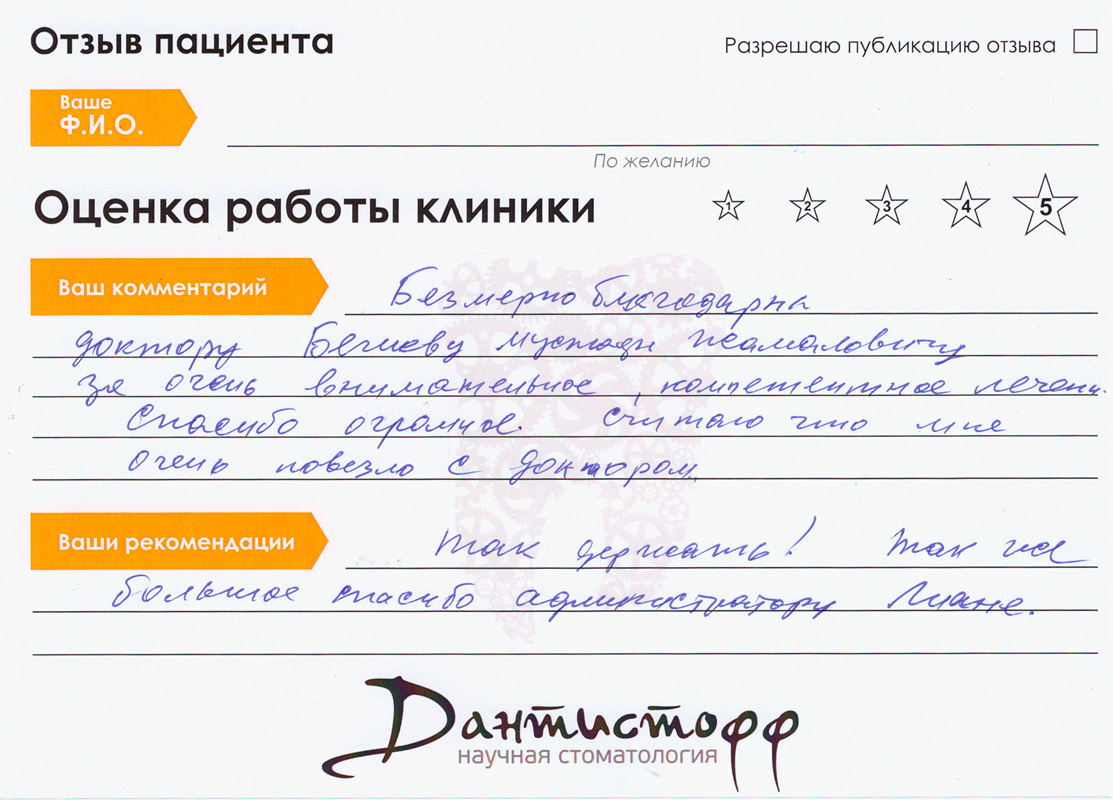 Отзыв пациента
Разрешаю публикацию отзыва
Ваше
Ф.И.О.
По желанию
Оценка работы клиники
1 2 3 4 5
Ваш комментарий
Безмерно благодарна
доктору
за очень внимательное, компетентное лечени
Спасибо огромное. Считаю что мне
очень повезло с доктором.
Ваши рекомендации
Так держать! Так же
большое спасибо администратору Лиане.
Дантистофф
научная стоматология